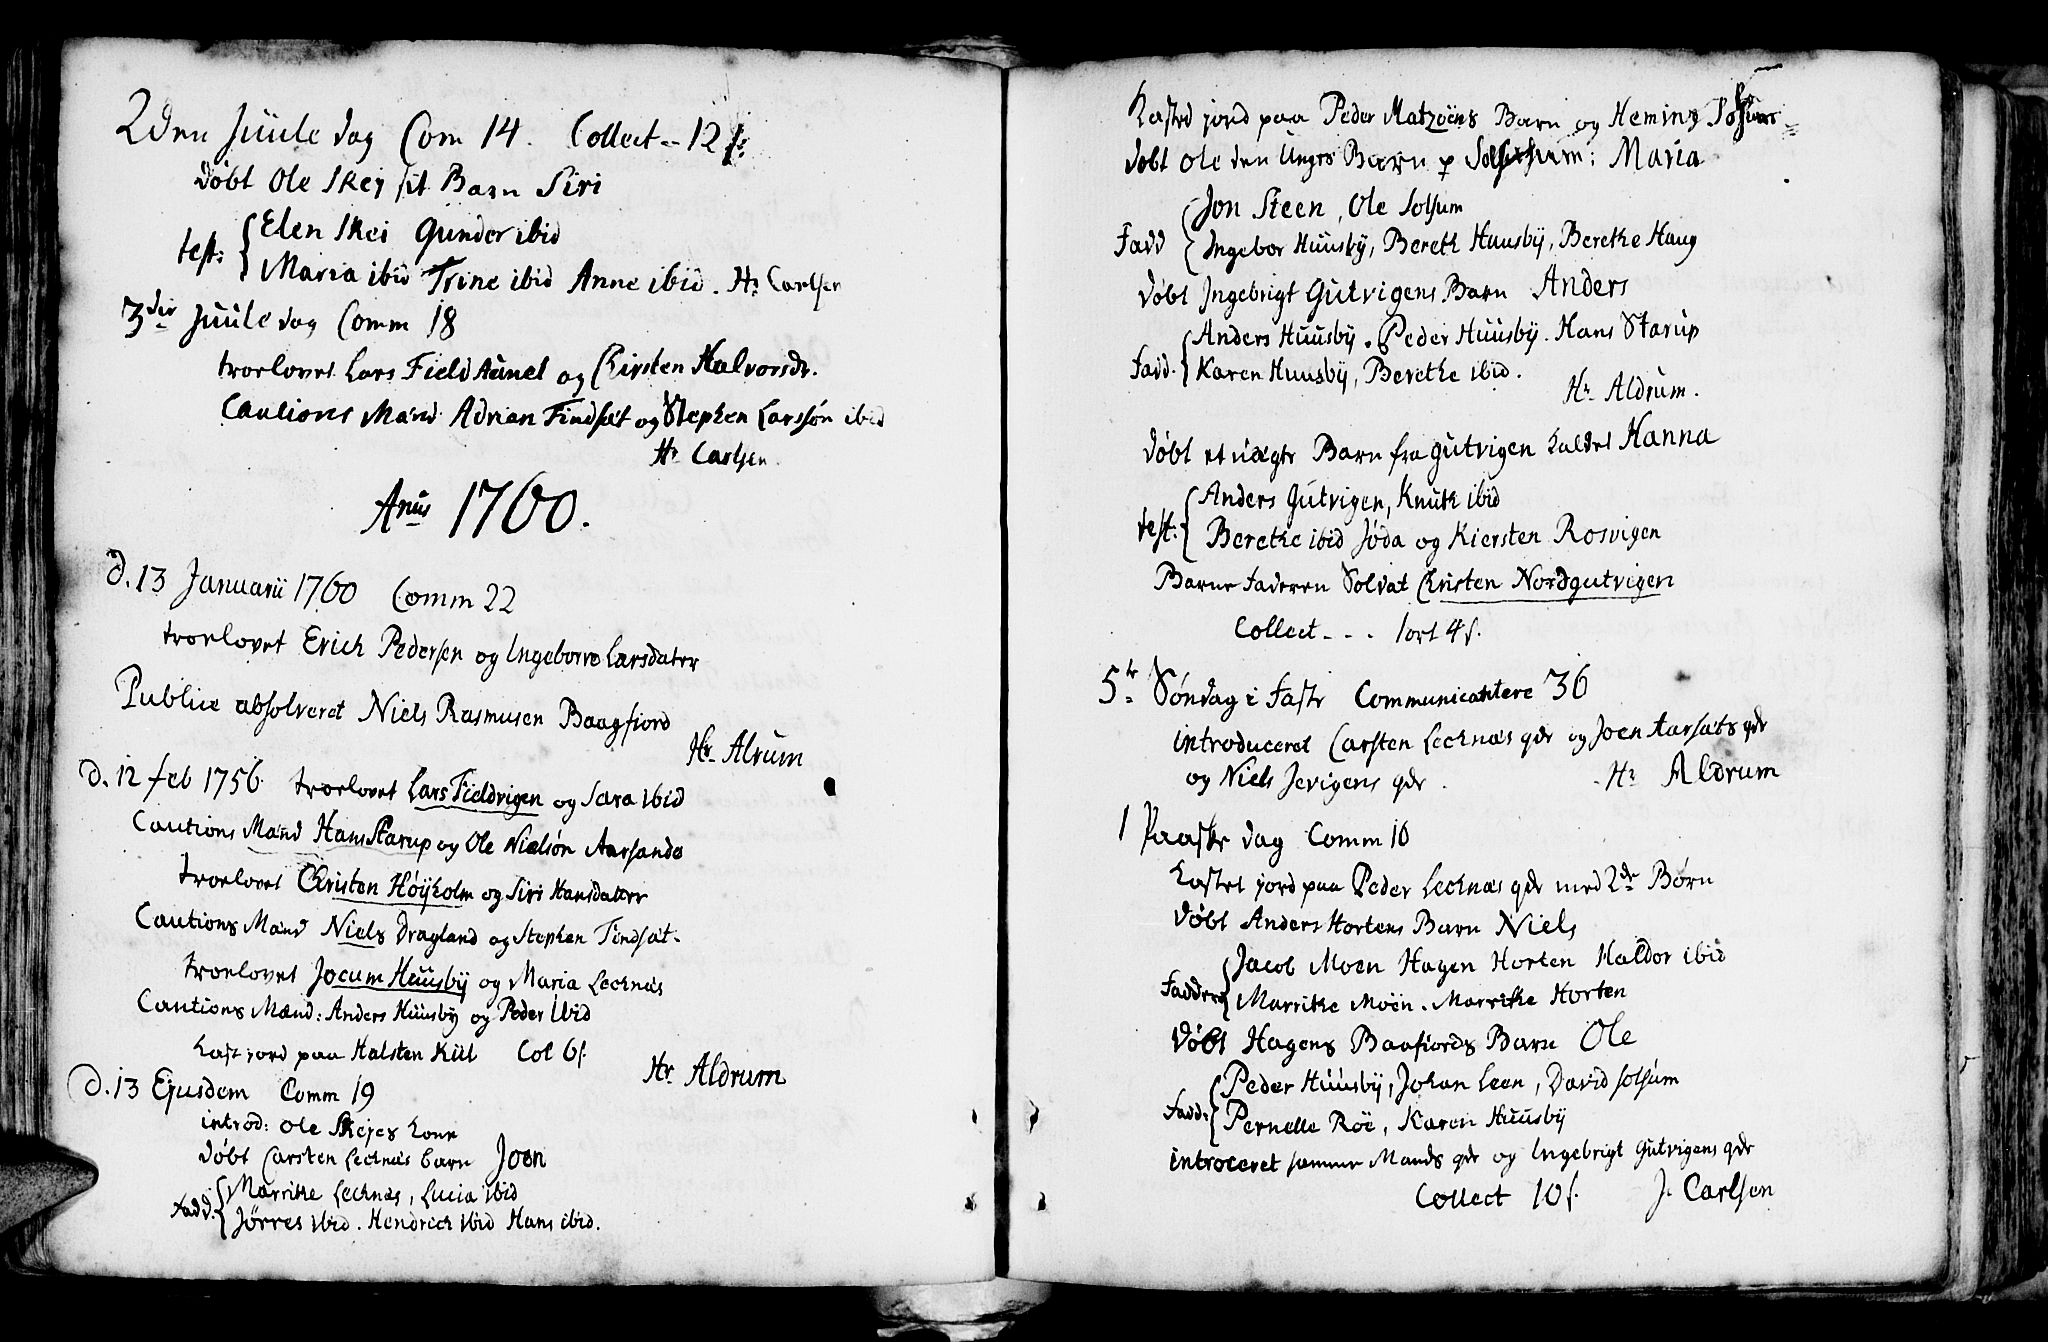 2den Juule dag Com 14. Collect -- 12 s:
døbt Ole Skej sit Barn Siri
test: Elen Skei Gunder ibid
Maria ibid Trine ibid Anne ibid. Hr Carlsen
3die Juule dag Comm 18
troelovet Lars Field Aunet og Chirsten Halvorsdr.
Cautions Mænd Adrian Findsæt og Stephen Larssøn ibid
Hr Carlsen.
Anus 1760.
d. 13 Januarii 1760 Comm 22
troelovet Erich Pedersen og Ingeborre Larsdater
Publice absolveret Niels Rasmusen Baagfiord
Hr Alrum
d. 12 feb 1756 troelovet Lars Fieldvigen og Sara ibid
Cautions Mænd Hans Starup og Ole Nielsøn Aarsando
troelovet Christen Høyholm og Siri Hansdatter
Cautions Mænd Niels Dragland og Stephen Findsæt.
troelovet Jocum Huusbÿ og Maria Lecknæs
Cautions Mænd: Anders Huusbÿ og Peder ibid
Kast jord paa Halsten Kiil Col 6 s.
Hr Aldrum
d. 13 Ejusdem Comm 19
introd: Ole Skejes Kone
døbt Carsten Lecknæs barn Joen
Fadd. Marrithe Lecknæs, Lucia ibid
Jørres ibid. Hendrech ibid Hans ibid.
Kasted jord paa Peder Matzøens Barn og Heming
døbt Ole den Ungres Barn p Solsum: Maria
Fadd Jon Steen, Ole Solsum
Ingebor Huusbÿ, Bereth Huusbÿ, Berethe Haug
døbt Ingebrigt Gutvigens Barn Anders
Fadd. Anders Huusbÿ. Peder Huusbÿ. Hans Starup
Karen Huusbÿ, Berethe ibid.
Hr Aldrum.
døbt et uægte Barn fra Gutvigen kaldet Hanna
test: Anders Gutvigen, Knuth ibid
Berethe ibid Jøda og Kiersten Rosvigen
Barne Faderen Soldat Christen Nordgutvigen
Collect - - - 1 ort 4 s.
5te Søndag i Faste Communicantere 36
introduceret Carsten Lecknæs qde og Joen Aarsæts qde
og Niels Jerigens qde. Hr Aldrum
1 Paaske dag Comm 10
Kastet jord paa Peder Lecknæs qde med 2de Børn
døbt Anders Hortens Barn Niels
Faddere Jacob Moen Hagen Horten Haldor ibid
Marrithe Moen. Marrithe Horten
døbt Hagens Baafiords Barn Ole
Fadd: Peder Huusbÿ, Johan Leen, David Solsum
Pernelle Röe, Karen Huusbÿ
introceret samme Mands qde og Ingebrigt Gutvigens qde
Collect 10 s. J. Carlsen